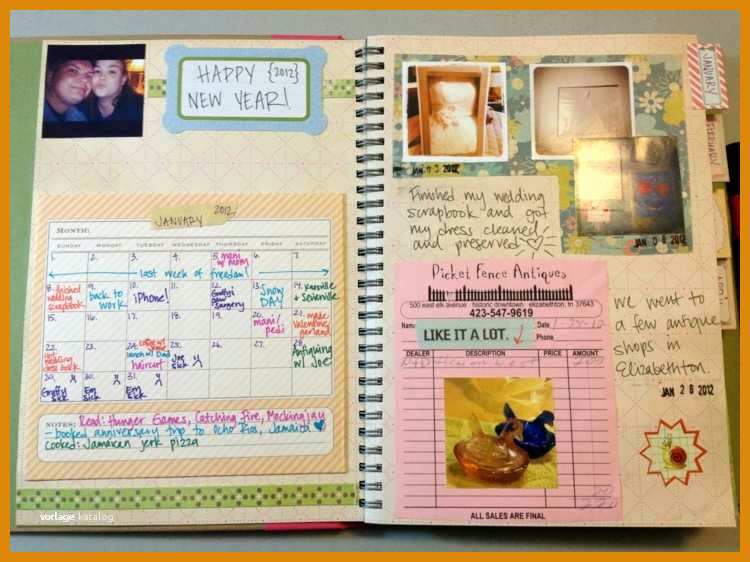 HAPPY {2012}
NEW YEAR!
JANUARY 2012
MONTH:
SUNDAY MONDAY TUESDAY WEDNESDAY THURSDAY FRIDAY SATURDAY
1. 2. 3. 4. 5. mani w/ mom 6. 7.
last week of freedom!
8. finished wedding scrapbook 9. back to work 10. iPhone! 11. 12. Graffiti paw surgery 13. Snow DAY 14. Knoxville + Sevierville
15. 16. 17. 18. 19. 20. mani/pedi 21. made valentine garland
22. got wedding dress back 23. 24. lunch w/ Dad haircut 25. Joe sick 26. 27. 28. Antiquing w/ Joe
29. Graffiti sick 30. Em sick 31. Em sick
NOTES: Read: Hunger Games, Catching Fire, Mockingjay
- booked anniversary trip to Ocho Rios, Jamaica
cooked: Jamaican jerk pizza
vorlage katalog
JANUARY
FEBRUARY
JAN 0 3 2012
JAN 0 8 2012
Finished my wedding
scrapbook and got
my dress cleaned
and preserved
Picket Fence Antiques
500 east elk avenue historic downtown elizabethton, tn 37643
423-547-9619
Name
Date
LIKE IT A LOT.
Phone
DEALER DESCRIPTION PRICE AMOUNT
ALL SALES ARE FINAL
We went to
a few antique
shops in
Elizabethton.
JAN 2 8 2012